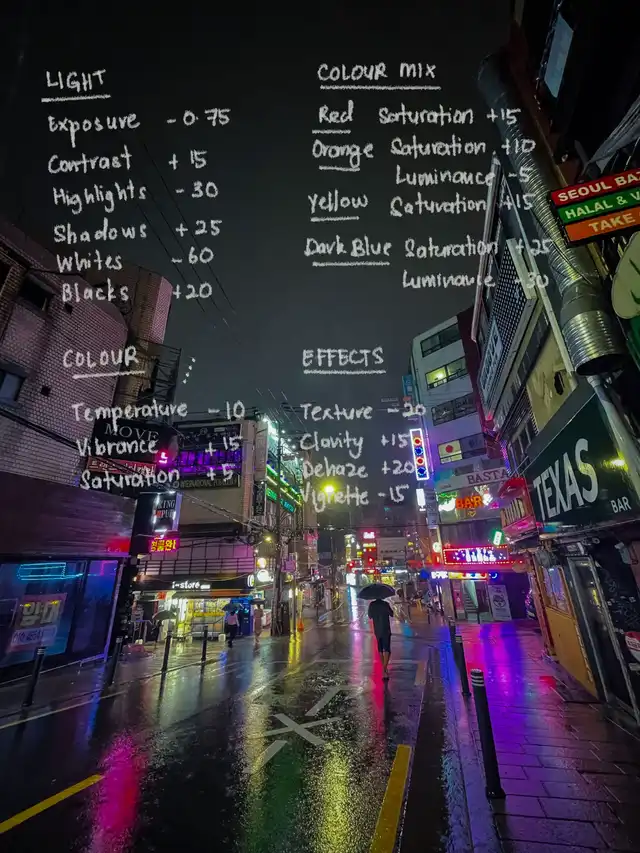 LIGHT
Exposure -0.75
Contrast +15
Highlights -30
Shadows +25
Whites -60
Blacks +20
COLOUR MIX
Red Saturation +15
Orange Saturation +10
Luminance -5
Yellow Saturation +15
Dark Blue Saturation +25
Luminance +30
COLOUR
Temperature -10
Vibrance +15
Saturation +5
EFFECTS
Texture -20
Clarity +15
Dehaze +20
Vignette -15
SEOUL BAZ
HALAL & V
TAKE
TEXAS
BAR
BASTA
BAR
i-STORE